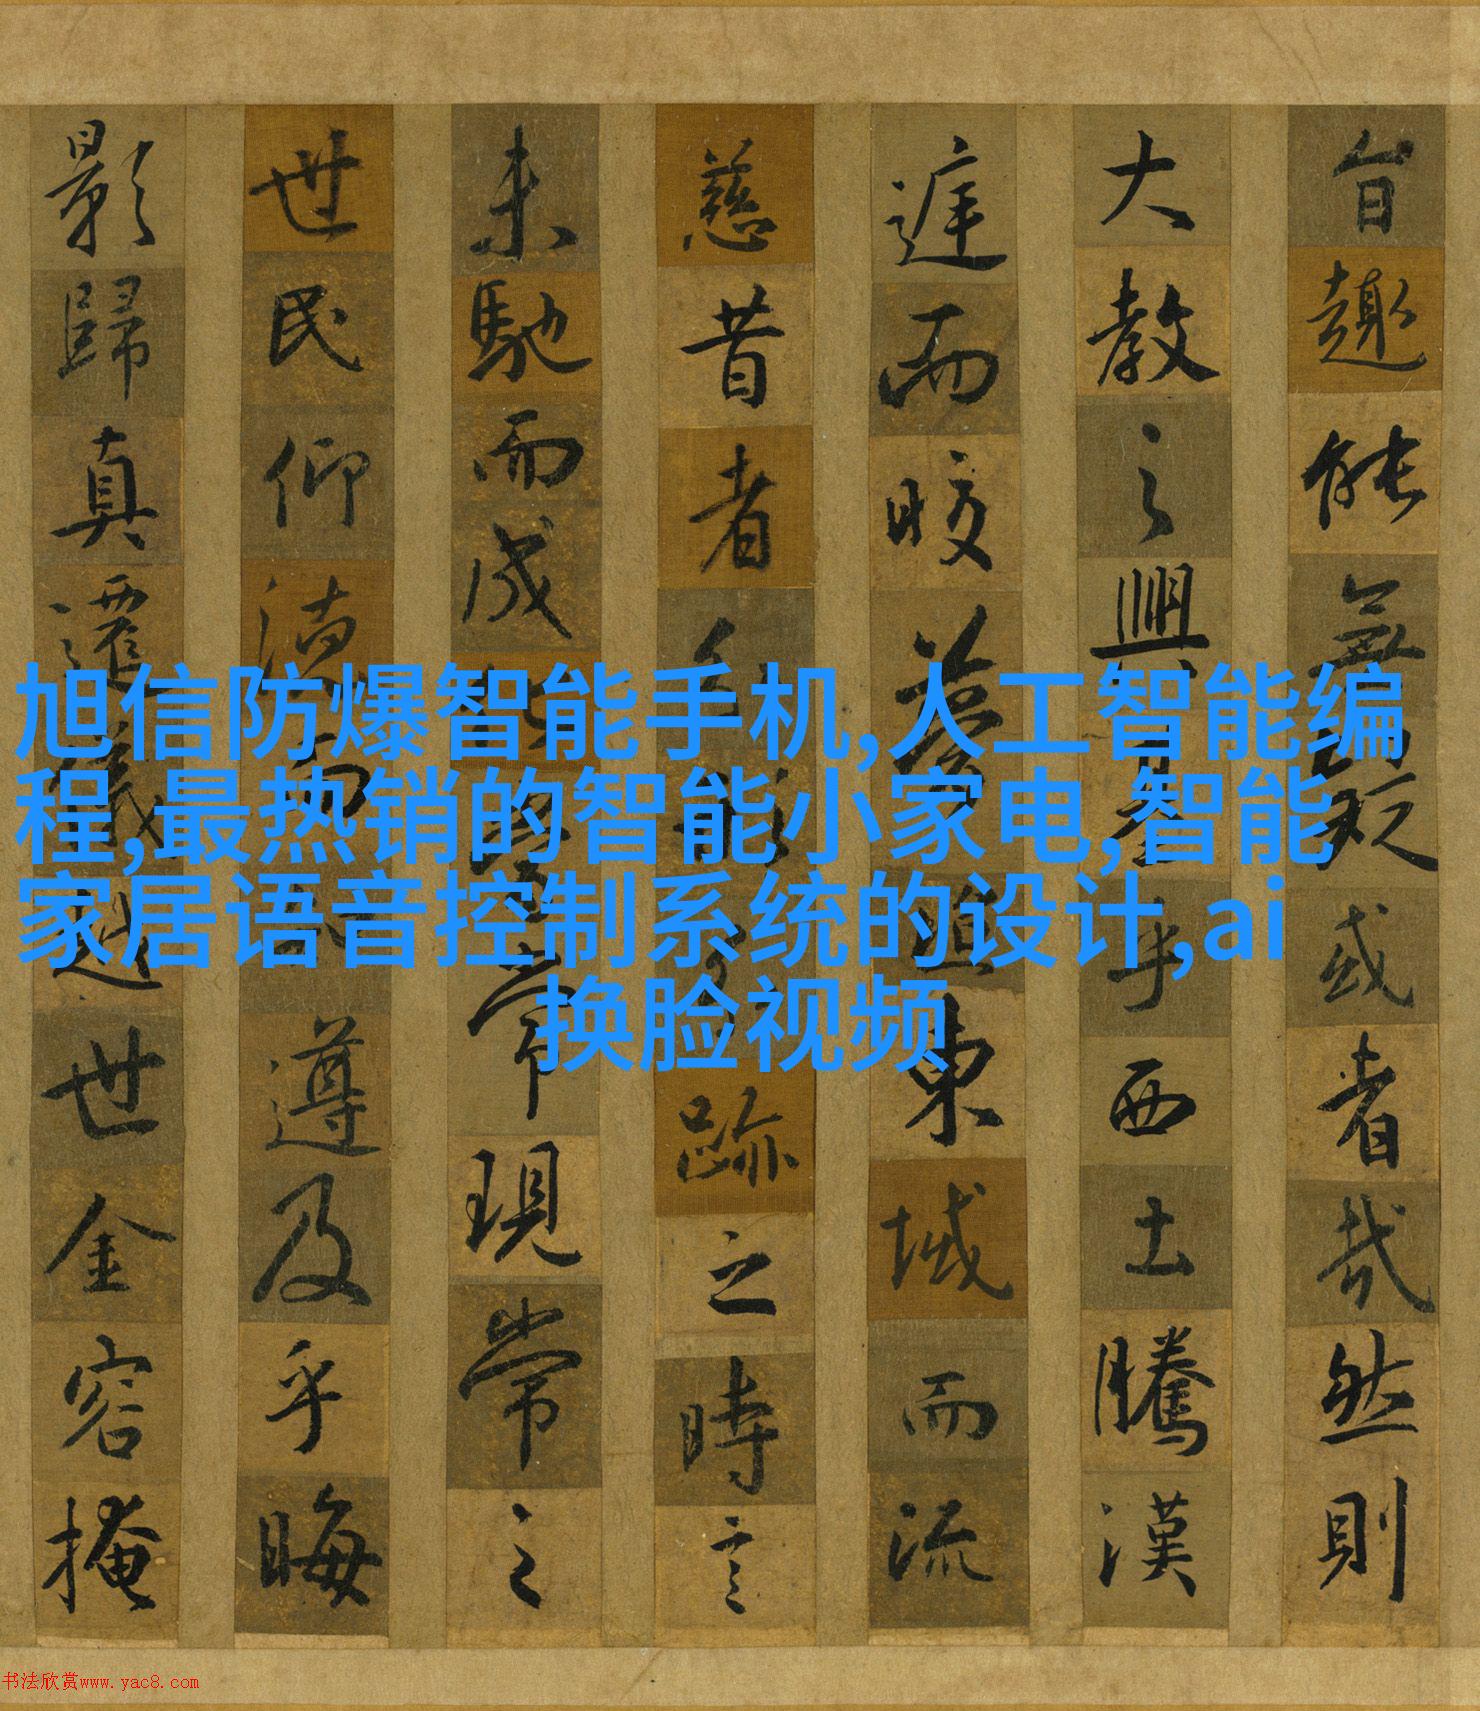 旨趣能無疑或者哉然則
大教之興基乎西土騰漢
庭而皎夢照東域而流
慈昔者分形分跡之時言
未馳而成化當常現常之
世民仰德而知遵及乎晦
影歸真遷儀越世金容掩
旭信防爆智能手机,人工智能编
程,最热销的智能小家电,智能
家居语音控制系统的设计,ai
换脸视频
书法欣赏www.yac8.com